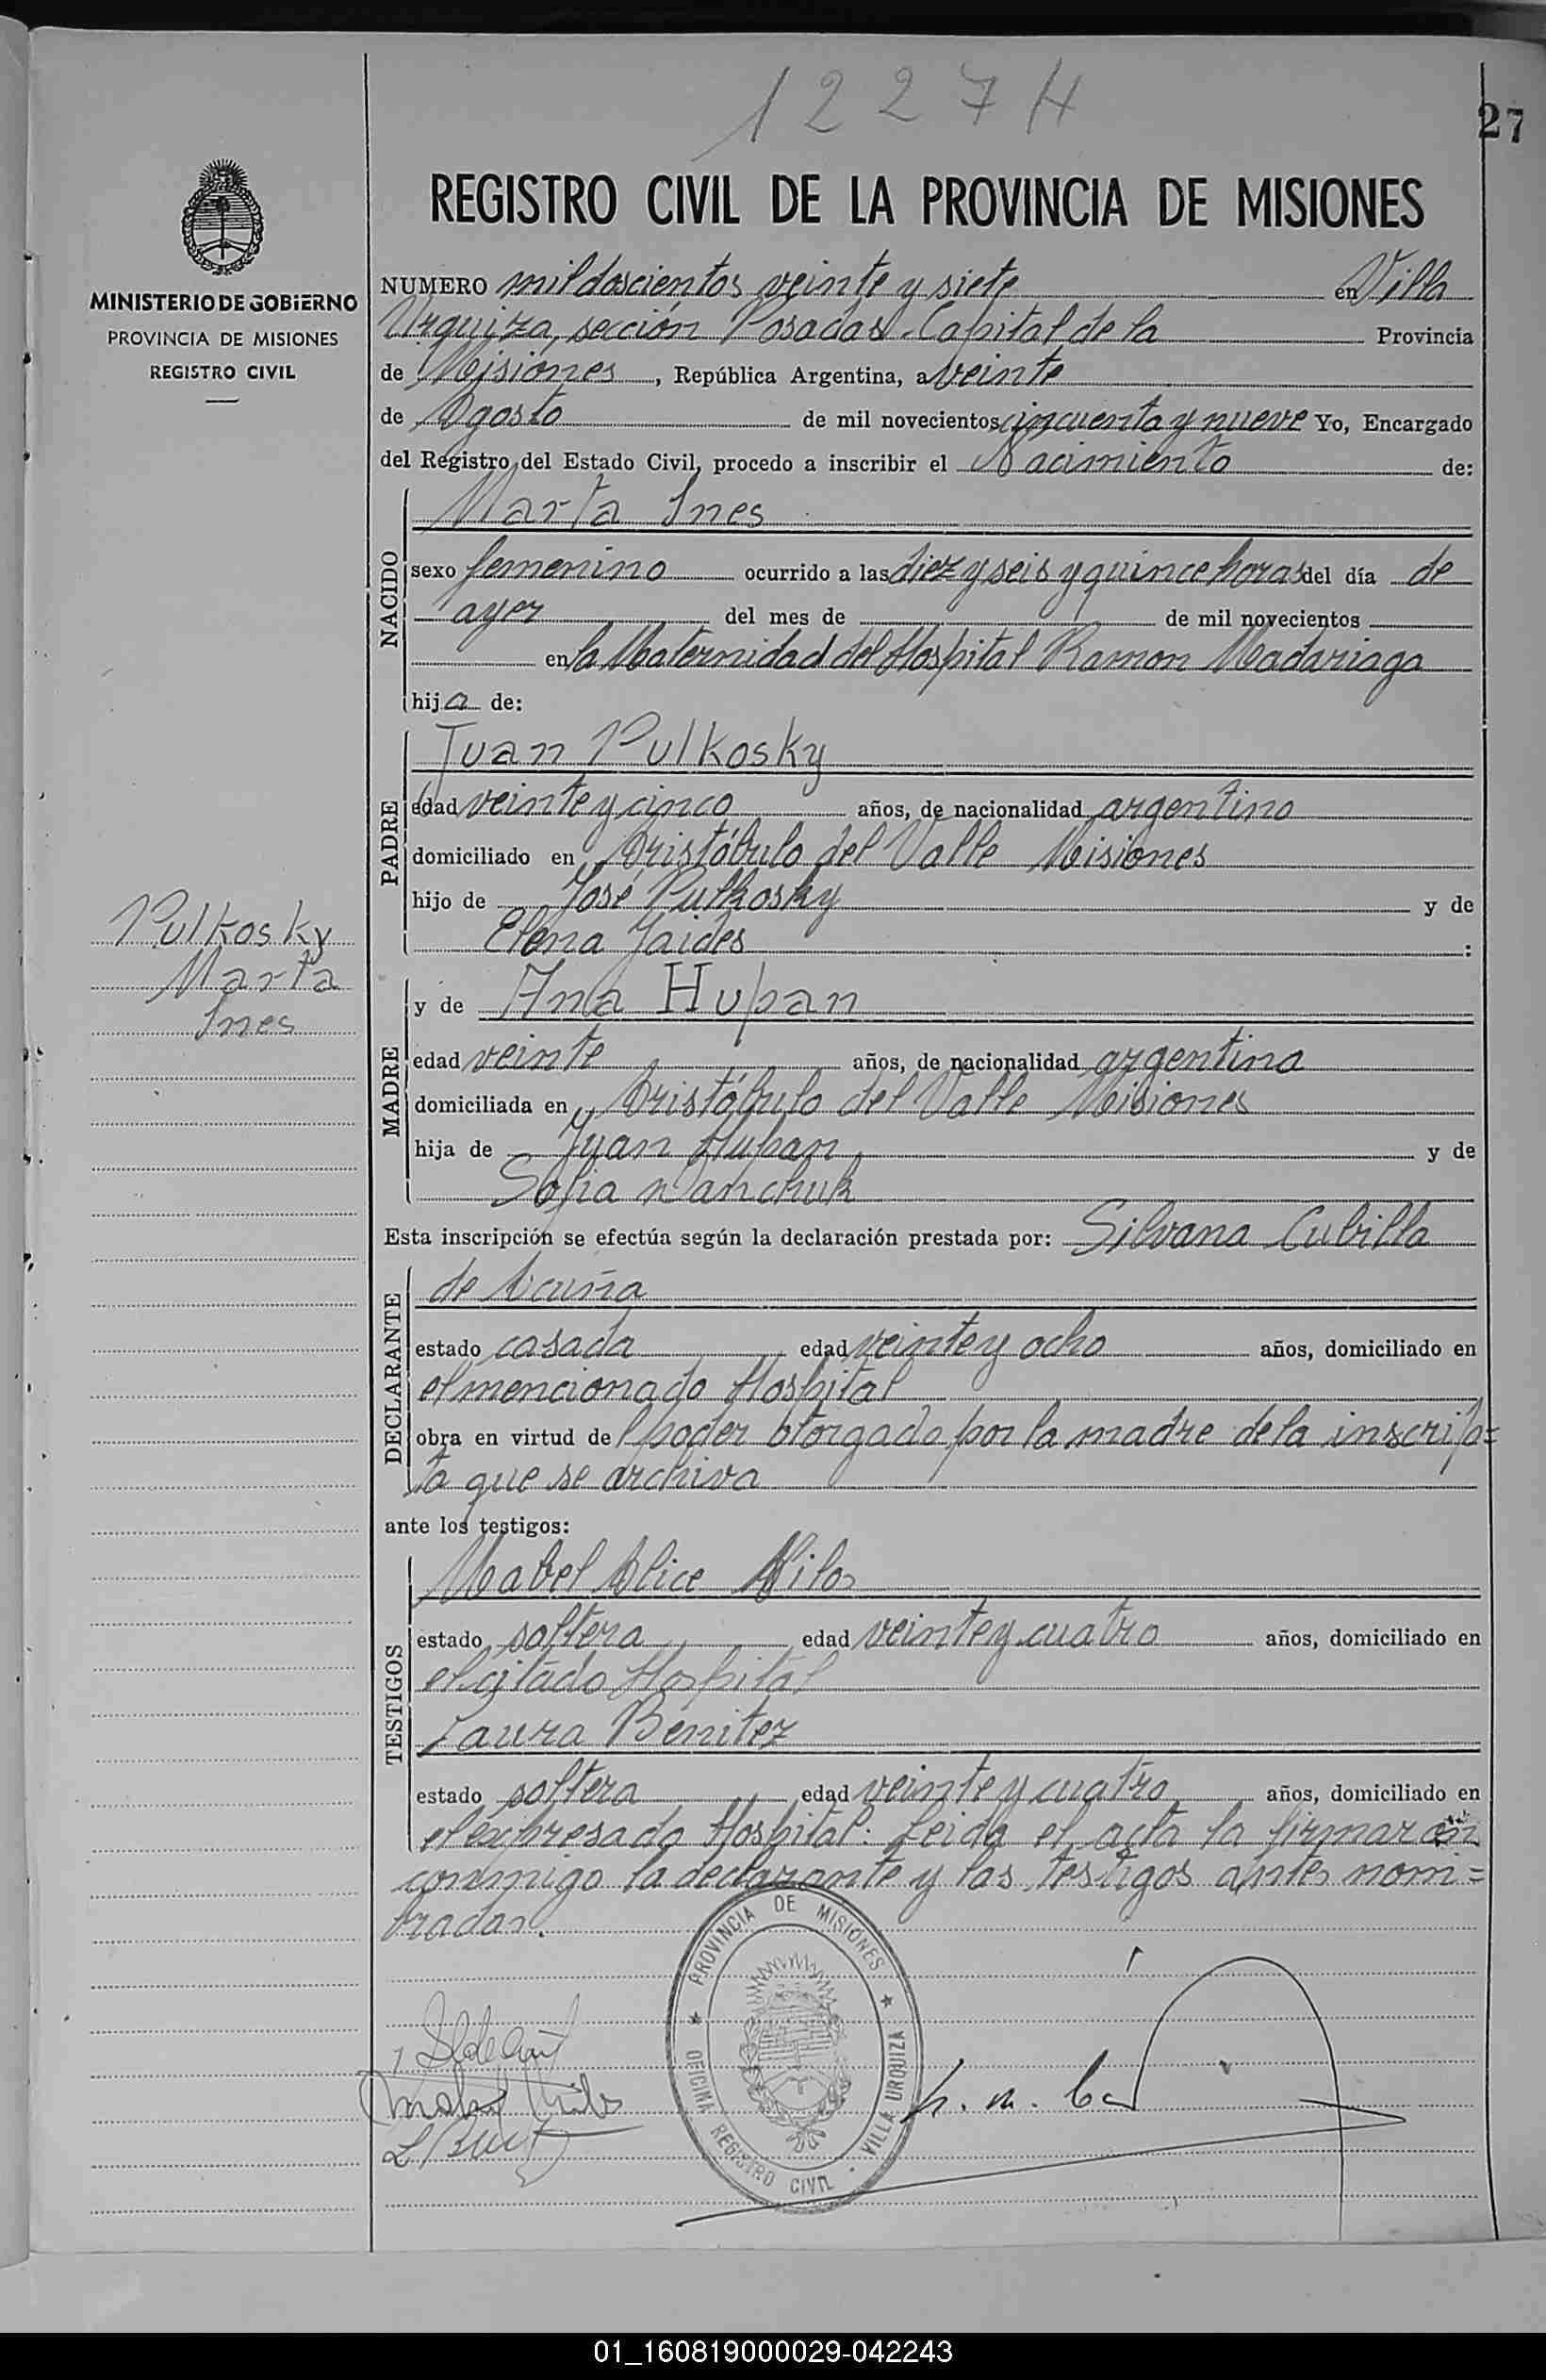 1227H
27
REGISTRO CIVIL DE LA PROVINCIA DE MISIONES
MINISTERIO DE GOBIERNO
PROVINCIA DE MISIONES
REGISTRO CIVIL
NUMERO mil doscientos veinte y siete en Villa
Urquiza, sección Posadas Capital de la Provincia
de Misiones, República Argentina, a veinte
de Agosto de mil novecientos cincuenta y nueve Yo, Encargado
del Registro del Estado Civil, procedo a inscribir el Nacimiento de:
NACIDO
Marta Ines
sexo femenino ocurrido a las diez y seis y quince horas del día de
ayer del mes de de mil novecientos
en la Maternidad del Hospital Ramon Madariaga
hija de:
PADRE
Juan Pulkosky
edad veinte y cinco años, de nacionalidad argentino
domiciliado en Aristóbulo del Valle Misiones
hijo de José Pulkosky y de
Elena Jaides:
Pulkosky
Marta
Ines
MADRE
y de Ana Hupan
edad veinte años, de nacionalidad argentina
domiciliada en Aristóbulo del Valle Misiones
hija de Juan Hupan y de
Sofia
Esta inscripción se efectúa según la declaración prestada por: Silvana Cubilla
DECLARANTE
de Acuña
estado casada edad veinte y ocho años, domiciliado en
el mencionado Hospital
obra en virtud del poder otorgado por la madre de la inscrip=
ta que se archiva
ante los testigos:
TESTIGOS
Mabel Alice
estado soltera edad veinte y cuatro años, domiciliado en
el citado Hospital
Laura Benitez
estado soltera edad veinte y cuatro años, domiciliado en
el expresado Hospital. Leida el acta la firmaron
conmigo la declarante y las testigos antes nom=
bradas.
PROVINCIA DE MISIONES
OFICINA REGISTRO CIVIL - VILLA URQUIZA
01_160819000029-042243